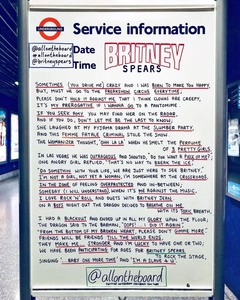 UNDERGROUND
Service information
@allontheboard
@allontheboard
@britneyspears
Date
Time
BRITNEY
SPEARS
SOMETIMES (YOU DRIVE ME) CRAZY AND I WAS BORN TO MAKE YOU HAPPY
BUT, MUST WE GO TO THE FREAKSHOW CIRCUS EVERYTIME,
PLEASE DON'T HOLD IT AGAINST ME THAT I THINK CLOWNS ARE CREEPY,
IT'S MY PREROGATIVE IF I WANNA GO TO A PANTOMIME.
IF YOU SEEK AMY YOU MAY FIND HER ON THE RADAR
AND IF YOU DO, DON'T LET ME BE THE LAST TO KNOW,
SHE LAUGHED AT MY PYJAMA DRAMA AT THE SLUMBER PARTY
AND THIS FEMME FATALE CRIMINAL STOLE THE SHOW.
THE WOMANIZER THOUGHT, "OOH LA LA" WHEN HE SMELT THE PERFUME
OF 3 PRETTY GIRLS
IN LAS VEGAS HE WAS OUTRAGEOUS AND SHOUTED, "DO YOU WANT A PIECE OF ME?"
ONE ANGRY GIRL REPLIED, "THAT'S NO WAY TO BREAK THE ICE,
"DO SOMETHIN' WITH YOUR LIFE, WE ARE JUST HERE TO SEE BRITNEY."
I'M NOT A GIRL, NOT YET A WOMAN, I'M SOMEWHERE AT THE CROSSROADS,
IN THE ZONE OF FEELING OVERPROTECTED AND IN-BETWEEN,
SOMEDAY (I WILL UNDERSTAND) WHEN IT'S ME AGAINST THE MUSIC,
I LOVE ROCK 'N' ROLL AND DUETS WITH BRITNEY JEAN
ON A BOYS NIGHT OUT THE DRAGON DECIDED TO BREATHE ON ME
WITH ITS TOXIC BREATH,
I HAD A BLACKOUT AND ENDED UP IN ALL MY GLORY UPON THE FLOOR,
THE DRAGON SAID TO THE BARMAID, "OOPS! ... I DID IT AGAIN"
"FROM THE BOTTOM OF MY BROKEN HEART, PLEASE DON'T GIMME MORE"
FRIENDS WILL BE FRIENDS TILL THE WORLD ENDS,
THEY MAKE ME... STRONGER AND I'M LUCKY TO HAVE ONE OR TWO;
WE HAVE BEEN ANTICIPATING FOR AGES FOR BRITNEY SPEARS
TO ROCK THE STAGE,
SINGING "...BABY ONE MORE TIME" AND "I'M A SLAVE 4 U".
@allontheboard